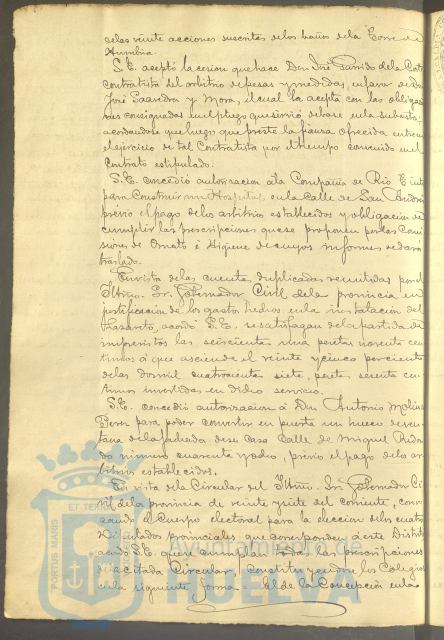 de las veinte acciones suscritas de los baños de la Torre de
Arenilla.
S.E. aceptó la cesion que hace Don José Garrido de la Corte
contratista del arbitrio de pesas y medidas, en favor de Don
José Saavedra y Mora, el cual la acepta con las obligacio-
nes consignadas en el pliego que sirvió de base en la subasta;
acordandose que luego que preste la fianza ofrecida entre en
el ejercicio de tal Contratista por el tiempo convenido en el
contrato estipulado.
S.E. concedió autorizacion a la Compañia de Rio Tinto
para Construir un Hospital, en la Calle de San Andrés
previo el pago de los arbitrios establecidos y obligacion de
cumplir las prescripciones que se proponen por las Comi-
siones de Ornato é Higiene de cuyos informes se dará
traslado.
En vista de las cuentas duplicadas remitidas por el
Iltmo. Sr. Gobernador Civil de la provincia en
justificacion de los gastos hechos en la instalacion del
Lazareto, acordó S.E. se satisfagan de la partida de
imprevistos las seiscientas una pesetas noventa cen-
timos á que asciende el veinte y cinco por ciento
de las dos mil cuatrocientas siete, pesetas sesenta cen-
timos invertidas en dicho servicio.
S.E. concedió autorizacion á Don Antonio Molina
Perez para poder convertir en puerta un hueco de ven-
tana de la fachada de su casa Calle de Miguel Redon-
do número cuarenta y ocho, previo el pago de los ar-
bitrios establecidos.
En vista de la Circular del Iltmo. Sr. Gobernador Ci-
vil de la provincia de veinte y siete del corriente, convo-
cando el Cuerpo electoral para la eleccion de los cuatro
Diputados provinciales que corresponden á este Distrito
acordó S.E. que cumplan todas las prescripciones
de la citada Circular, constituyendose los Colegios
en la siguiente forma: el de la Concepcion en la
PORTUS MARIS ET TERRAE
Ayuntamiento de
HUELVA